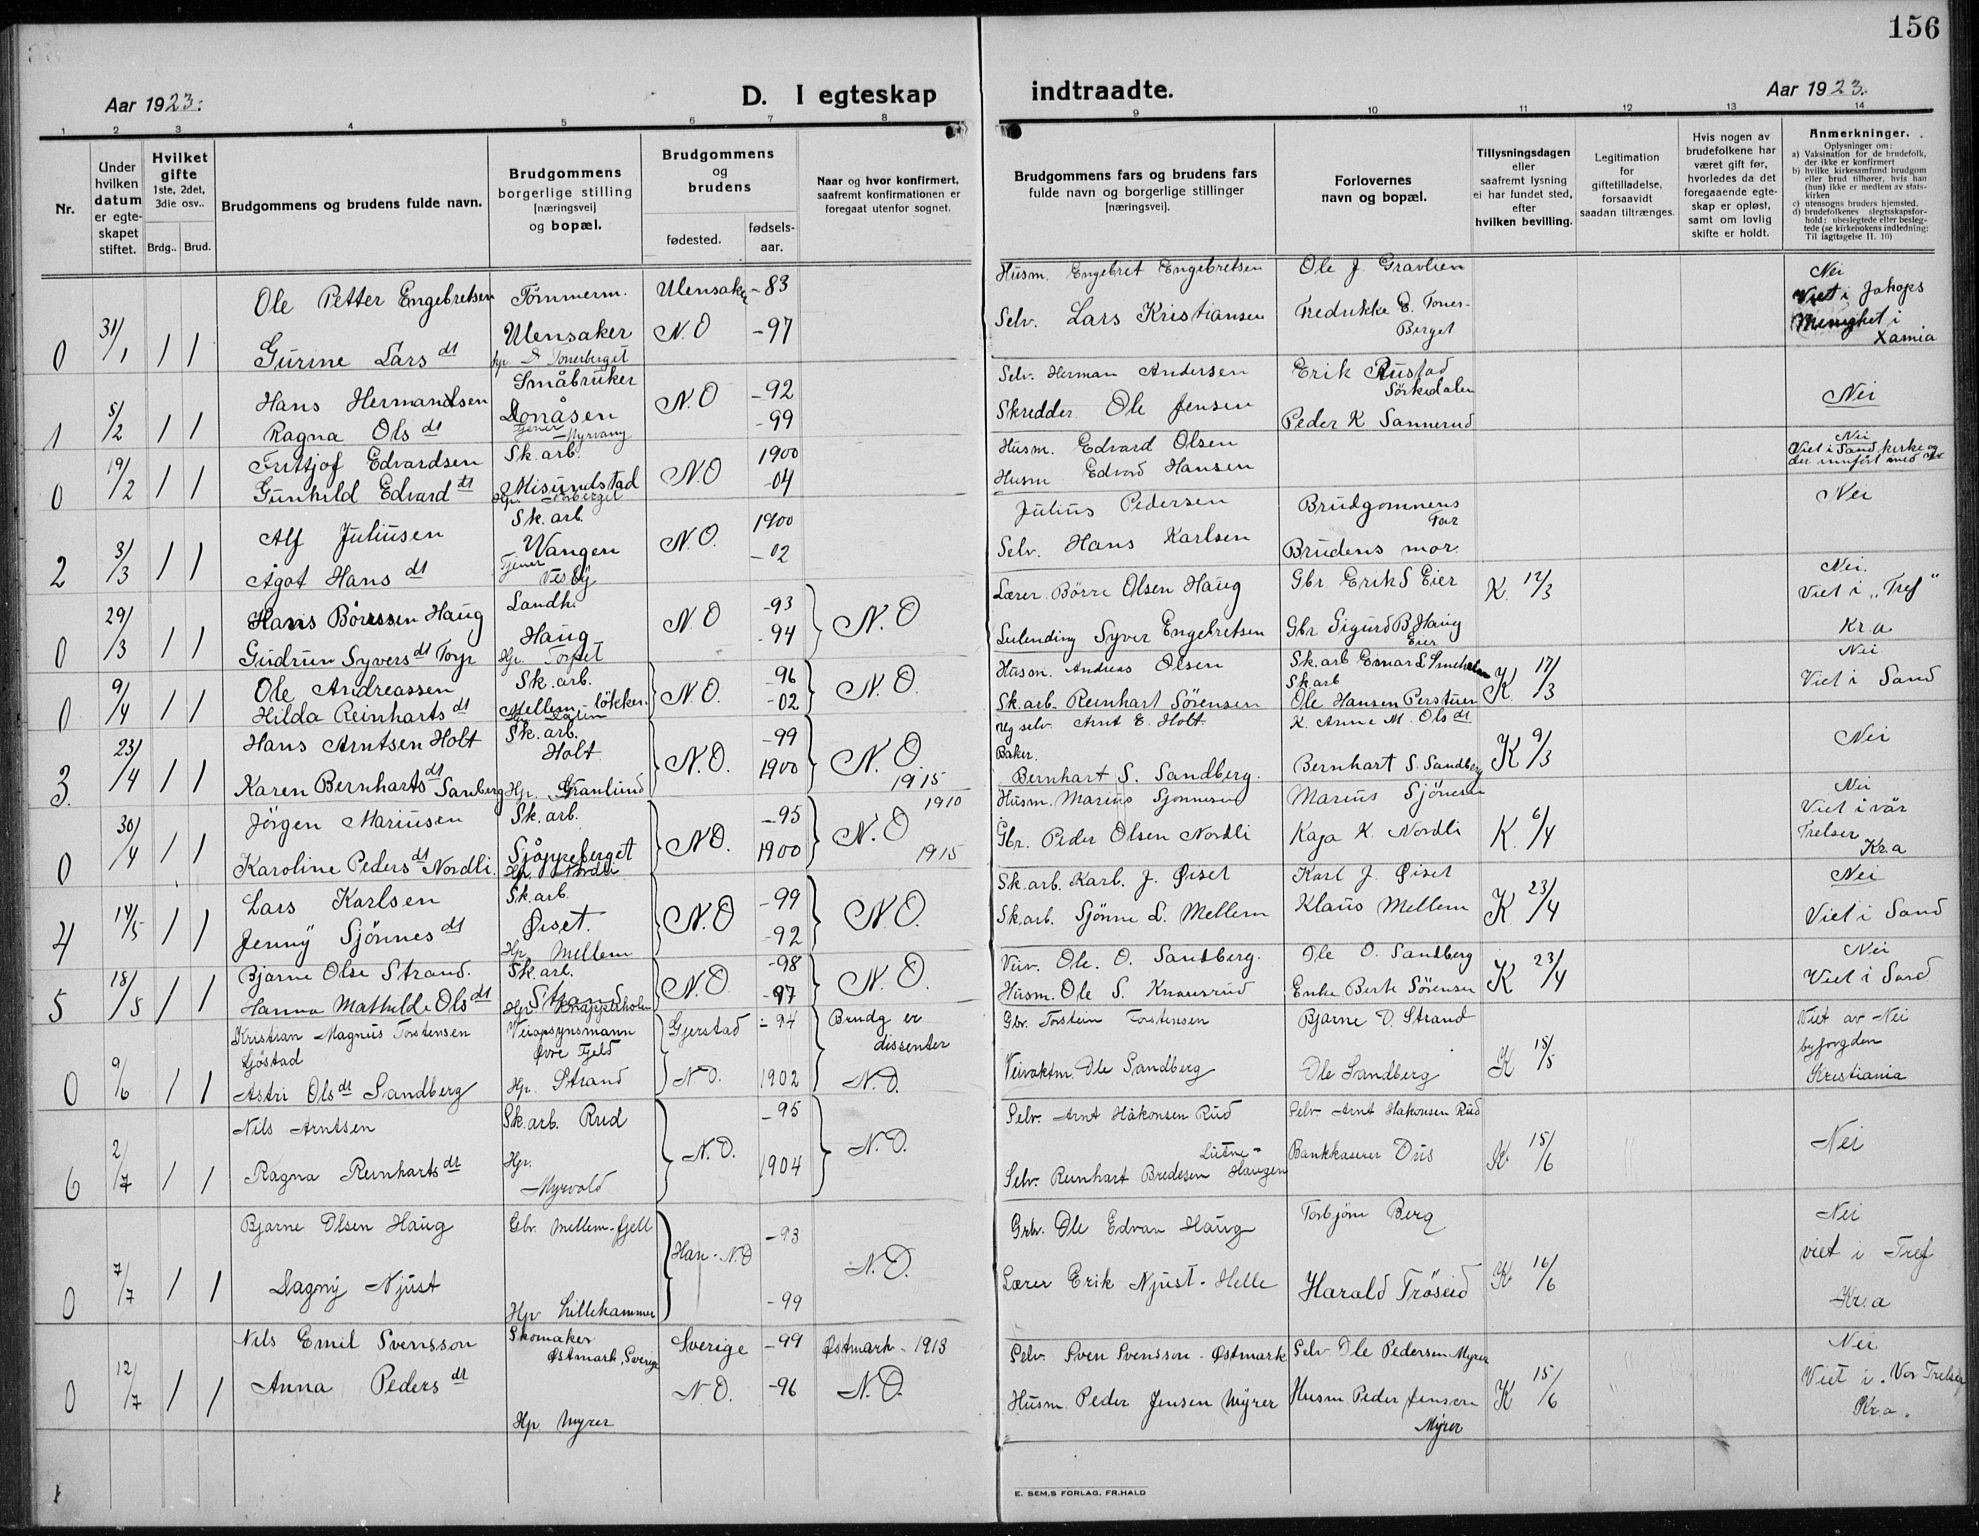 156
Aar 1923.
D. I egteskap indtraadte.
Aar 1923.
1 2 3 4 5 6 7 8 9 10 11 12 13 14
Nr.
Under hvilken datum er egteskapet stiftet.
Hvilket gifte
1ste, 2det, 3die osv..
Brdg.. Brud.
Brudgommens og brudens fulde navn.
Brudgommens borgerlige stilling [næringsvei] og bopæl.
Brudgommens og brudens
fødested.
fødsels-aar.
Naar og hvor konfirmert, saafremt konfirmationen er foregaat utenfor sognet.
Brudgommens fars og brudens fars fulde navn og borgerlige stillinger [næringsvei].
Forlovernes navn og bopæl.
Tillysningsdagen eller saafremt lysning ei har fundet sted, efter hvilken bevilling.
Legitimation for giftetilladelse, forsaavidt saadan tiltrænges.
Hvis nogen av brudefolkene har været gift før, hvorledes da det foregaaende egteskap er opløst, samt om lovlig skifte er holdt.
Anmerkninger.
Oplysninger om:
a) Vaksination for de brudefolk, der ikke er konfirmert
b) hvilke kirkesamfund brudgom eller brud tilhører, hvis han (hun) ikke er medlem av statskirken
c) utensogns bruders hjemsted.
d) brudefolkenes slegtsskapsforhold: ubeslegtede eller beslegtede (se kirkebokens indledning: Til iagttagelse II. 10)
0 31/1 1 1 Ole Petter Engebretsen Tømmerm. Ulensaker Ulensaker -83 Husm. Engebret Engebretsen Ole J. Gravlien Nei
Gurine Lars dt N.O -97 Selv. Lars Kristiansen Fredrikke Tonerberget Viet i Jakops Menighet i Xania
1 5/2 1 1 Hans Hermandsen Småbruker N.O -92 Selv. Herman Andersen Erik Rustad Sørkedalen Nei
Ragna Ols dt Tjener Myrvang -99 Skredder. Ole Jensen Peder K Sannerud
0 19/2 1 1 Frittjof Edvardsen Sk. arb. Misundstad N.O 1900 Husm. Edvard Olsen Nei
Gunhild Edvard dt -04 Husm Edvard Hansen Viet i Sand kirke og der innført
2 3/3 1 1 Alf Juliusen Sk. arb. Wangen N.O. 1900 Julius Pedersen Brudgommens Far Nei
Agot Hans dt Tjener Vesby -02 Selv. Hans Karlsen Brudens mor.
0 29/3 1 1 Hans Børresen Haug Landh. Haug N.O -93 N.O Lærer. Børre Olsen Haug Gbr. Erik S Eier K. 12/3 Nei. Viet i „Tref"
Gudrun Syvers dt Torp Hp. Torpet -94 Syver Engebretsen Gbr Sigurd B. Haug Eier Kr.a
0 9/4 1 1 Ole Andreassen Sk. arb. Mellem løkken N.O. -96 N.O. Husm. Andreas Olsen Sk. arb K 17/3 Nei
Hilda Reinharts dt -02 Sk. arb. Reinhart Sørensen Sk arb Ole Hansen Viet i Sand
3. 23/4 1 1 Hans Arntsen Holt Sk. arb. Holt N.O. -99 N.O. selv. Arnt E. Holt. K. Anne M. Ols dt K 9/3 Nei
Karen Bernharts dt Sanberg Hp. Granlund 1900 1915 Baker. Bernhart S. Sandberg. Bernhart S. Sandberg
0 30/4 1 1 Jørgen Mariusen Sk. arb. Sjøppeberget N.O. -95 N.O 1910 Husm. Marius Marius K. 6/4 Nei Viet i vår
Karoline Peders dt Nordli. Hp. Nordli 1900 1915 Gbr. Peder Olsen Nordli Kaja K. Nordli Frelser Kr.a
4 14/5 1 1 Lars Karlsen Sk. arb. Øiset. N.O -99 N.O. Sk. arb. Karl. J. Øiset Karl J. Øiset K 23/4 Nei
Jenny Sjønnes dt Hp. Mellem -92 Sk. arb. Sjønne L. Mellem Klaus Mellem Viet i Sand
5 18/5 1 1 Bjarne Olse Strand. Sk. arb. Strand N.O -98 N.O. Ole. O. Sandberg. Ole O. Sandberg K 23/4 Nei
Hanna Mathilde Ols dt Hp. -97 Husm. Ole S. Knausrud Enke Berte Sørensen Viet i Sand
0 9/6 1 1 Kristian Magnus Torstensen Gjøstad Veiopsynsmann Øvre Fjeld Gjerstad -94 Brudg er dissenter Gbr. Torstein Torstensen Bjarne O. Strand K 15/5 Viet av Nei
Astri Ols dt Sandberg Hp. Strand N.O. 1902 N.O. Veivaktm. Ole Sandberg Ole Sandberg byfogden Kristiania
6 2/7 1 1 Nils Arntsen Sk. arb. Rud N.O. -95 N.O. Selv. Arnt Håkonsen Rud Selv. Arnt Hakonsen Rud K 15/6 Nei
Ragna Reinharts dt Hp. Myrvold 1904 Selv. Reinhart Bredesen Haugen Bankkaserer Dus
0 7/7 1 1 Bjarne Olsen Haug Gbr. Mellem-fjell Han - N.O -93 N.O. Gbr. Ole Edvan Haug Torbjørn Berg K 16/6 Nei
Dagny Njust Hp. Lillehammer -99 Lærer Erik Njust - Helle Harald Trøseid viet i Tref Kr.a
0 12/7 1 1 Nils Emil Svensson Skomaker Østmark, Sverige Sverige -99 Østmark - 1913 Selv. Sven Svensson - Østmark Selv. Ole Pedersen Myrer K 15/6 Nei
Anna Peders dt Hp Myrer N.O. -96 N.O. Husm. Peder Jensen Myrer Husm. Peder Jensen Myrer Viet i. Vor Frelser Kr.a.
E. SEM.S FORLAG, FR.HALD